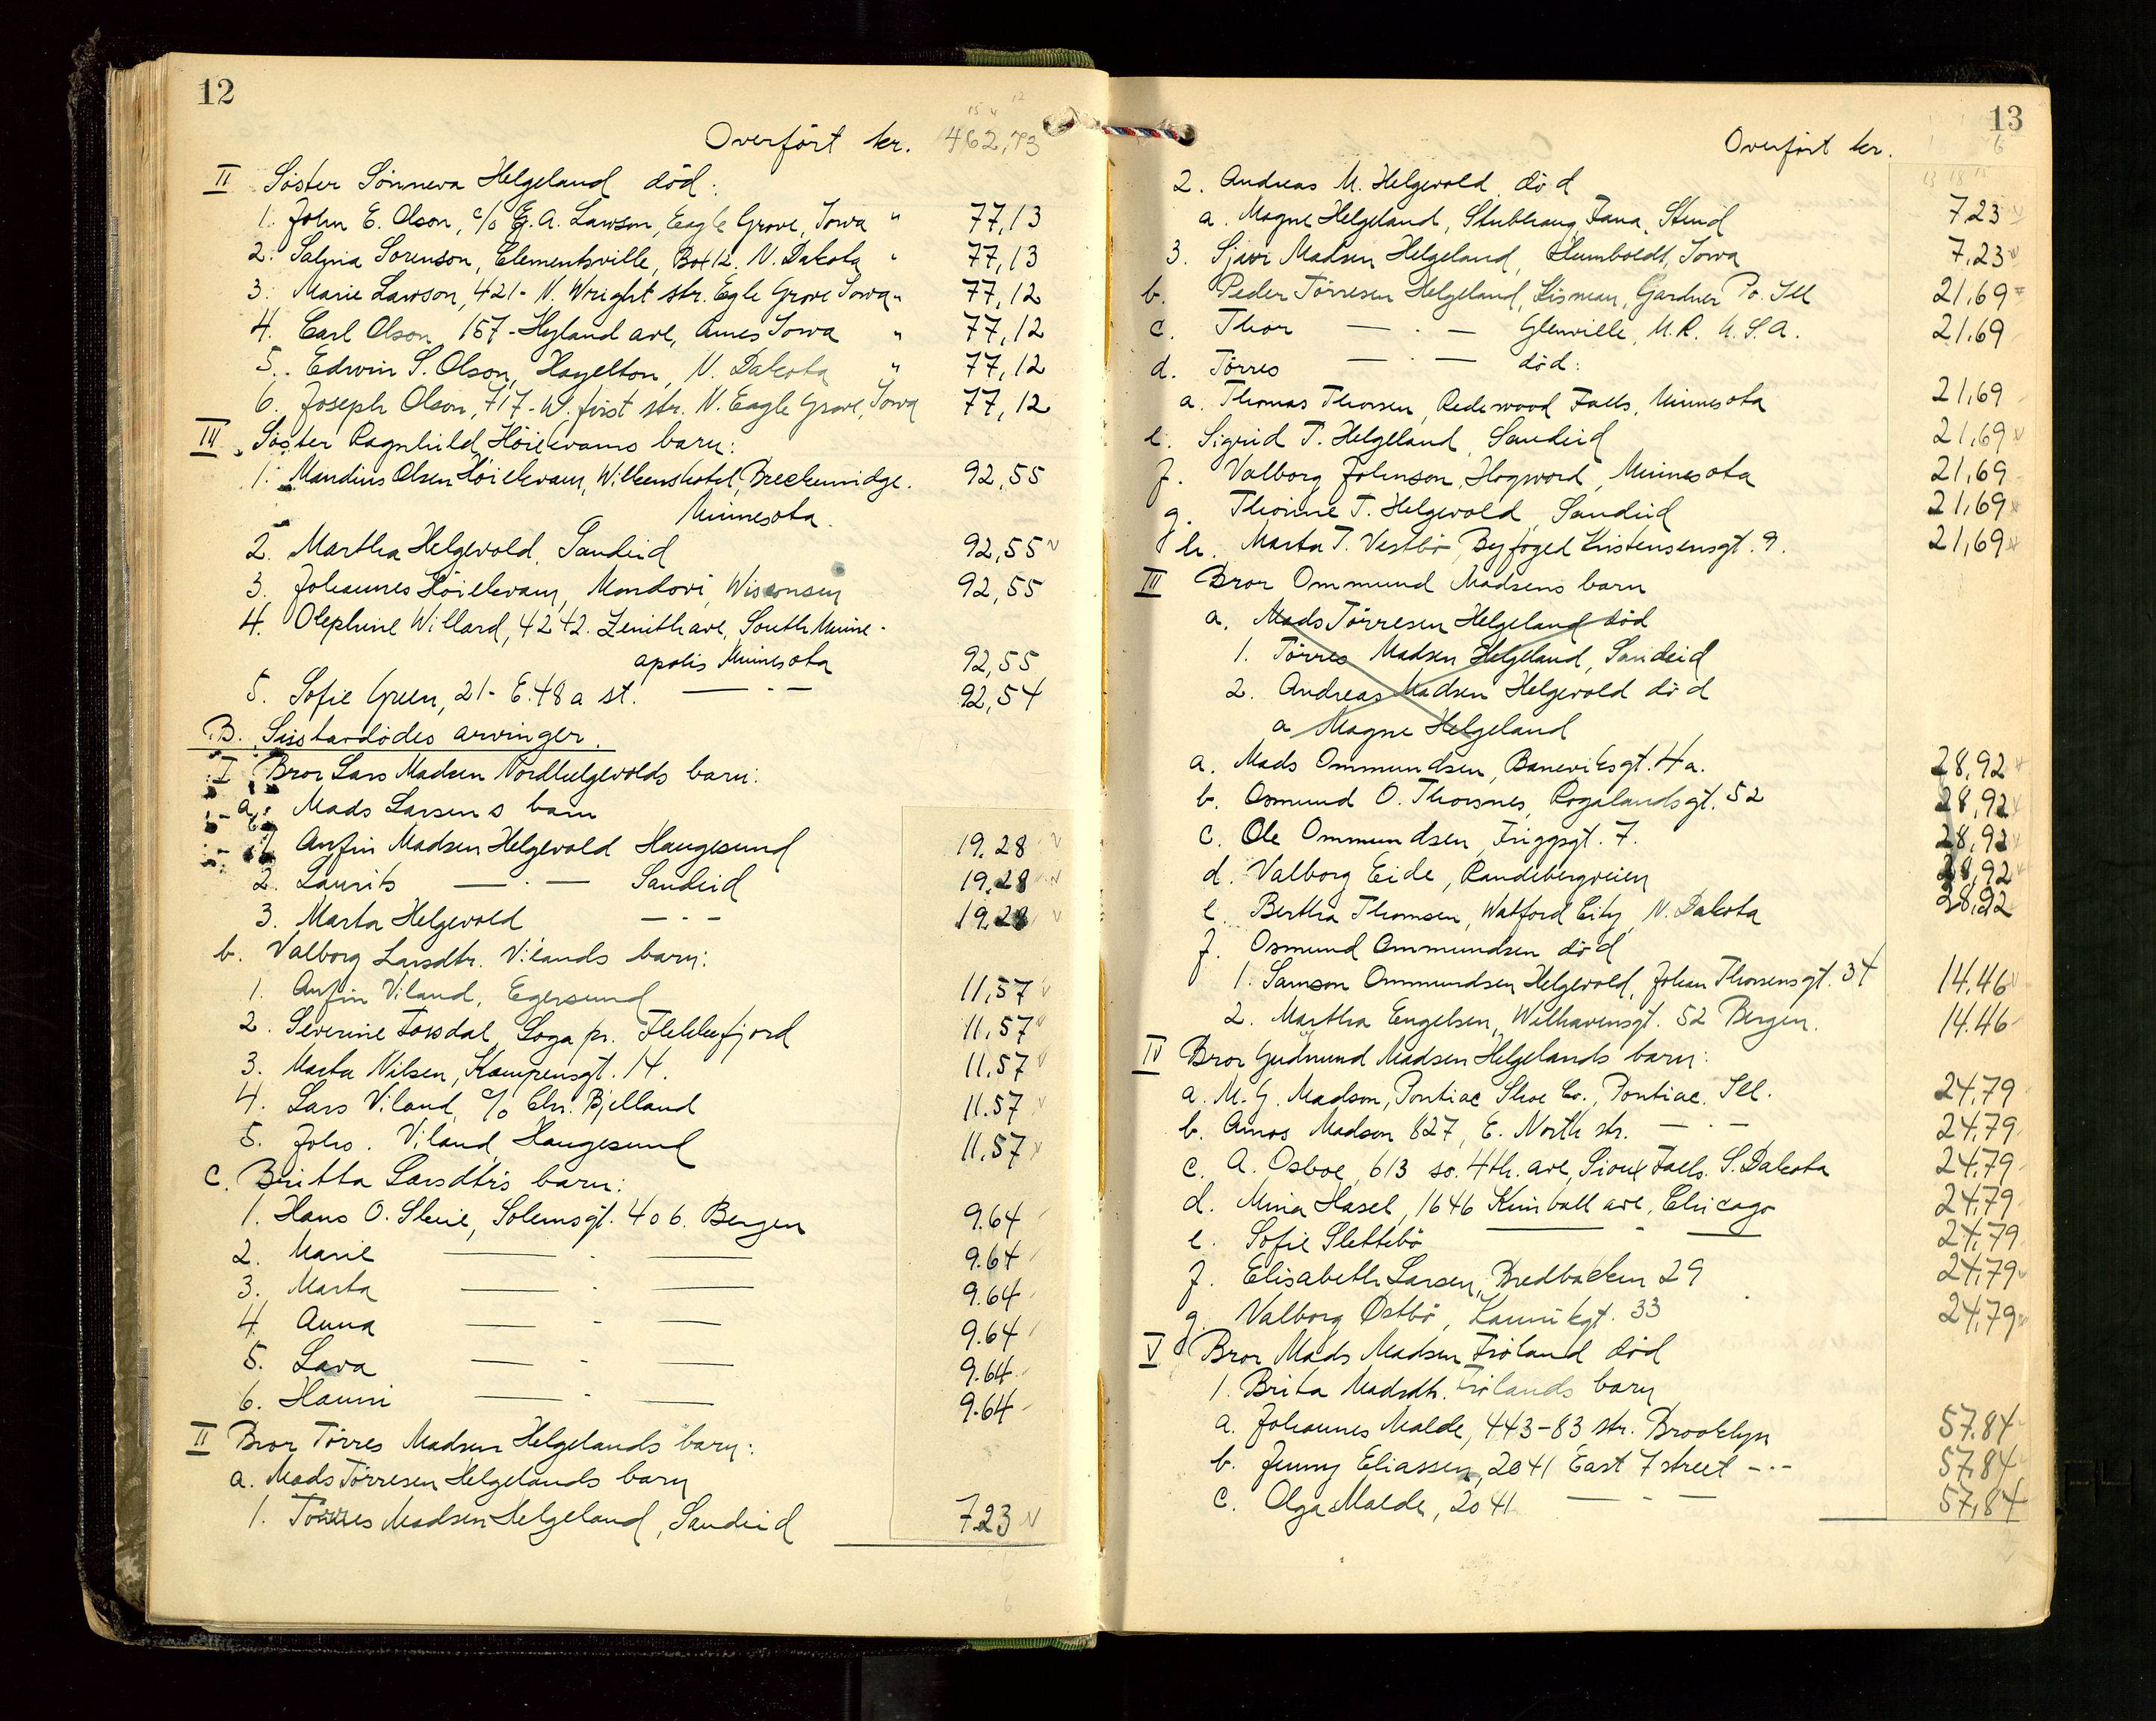 12
Overført kr. 462,73
II Søster Sønneva Helgeland død:
1. John E. Olson, c/o E. A. Lawson, Eagle Grove, Iowa " 77,13
2. Salina Sorenson, Clementsville, Box 12. N. Dakota " 77,13
3. Marie Lawson, 421- N. Wright str. Egle Grove Iowa " 77,12
4. Carl Olson 157- Hyland ave, Ames Iowa " 77,12
5. Edwin S. Olson, Hazelton, N. Dakota " 77,12
6. Joseph Olson, 717- W. first str. N. Eagle Grove, Iowa 77,12
III Søster Ragnhild Høiekvams barn:
1. Mandius Olsen Høiekvam, Wilkenshotel, Breckenridge. 92,55
Minnesota.
2. Martha Helgevold, Sandeid 92,55 v
3. Johannes Høiekvam, Mondovi, Wisconsin 92,55
4. Olephine Willard, 4242. Zenith ave, South Minne-
apolis Minnesota 92,55
5. Sofie Green, 21- E. 48 a st. — " — 92,54
B. Sistavdødes arvinger.
I Bror Lars Madsen Nordhelgevolds barn:
a. Mads Larsens barn
1. Anfin Madsen Helgevold Haugesund 19.28 v
2. Laurits — " — Sandeid 19.28 v
3. Marta Helgevold — " — 19.28 v
b. Valborg Larsdtr. Vilands barn:
1. Anfin Viland, Egersund 11,57 v
2. Severine Fossdal, Loga pr. Flekkefjord 11.57 v
3. Marta Nilsen, Kampensgt. 14. 11.57 v
4. Lars Viland, c/o Chr. Bjelland 11.57 v
5. Johs. Viland, Haugesund 11.57 v
c. Britta Larsdtrs barn:
1. Hans O. Skeie, Solemsgt. 4 o 6. Bergen 9.64
2. Marie — " — 9.64
3. Marta — " — 9.64
4. Anna — " — 9.64
5. Lava — " — 9.64
6. Hanni — " — 9.64
II Bror Tørres Madsen Helgelands barn:
a. Mads Tørresen Helgelands barn
1. Tørres Madsen Helgeland, Sandeid 7.23 v
13
Overført kr.
2. Andreas M. Helgevold død
a. Magne Helgeland, Stubhaug, Fana, Stend 7.23 v
3. Sjavi Madsen Helgeland, Humboldt, Iowa 7.23 v
b. Peder Tørresen Helgeland, Kisman, Gardner Po. Ill 21.69
c. Thor — " — Glenville, M.R. U.S.A. 21.69
d. Tørres — " — død:
a. Thomas Thorsen, Redewood Falls, Minnesota 21,69
e. Sigrid T. Helgeland, Sandeid 21,69 v
f. Valborg Johnson, Hogword, Minnesota 21,69
g. Thorine T. Helgevold, Sandeid 21,69
h. Marta T. Vestbø, Byfoged Kristensensgt. 9. 21,69
III Bror Ommund Madsens barn
a. Mads Tørresen Helgeland død
1. Tørres Madsen Helgeland, Sandeid
2. Andreas Madsen Helgevold død
a Magne Helgeland
a. Mads Ommundsen, Baneviksgt. 4 a. 28,92
b. Osmund O. Thorsnes, Rogalandsgt. 52 28,92
c. Ole Ommundsen, Friggsgt. 7. 28,92
d. Valborg Eide, Randebergveien 28,92
e. Bertha Thomsen, Watford City, N. Dakota 28,92
f. Osmund Ommundsen død
1. Samson Ommundsen Helgevold, Johan Thorsensgt. 34 14.46
2. Martha Engelsen, Welhavensgt. 52 Bergen. 14.46
IV Bror Gudmund Madsen Helgelands barn:
a. M. G. Madson, Pontiac Shoe Co., Pontiac. Ill. 24,79
b. Amos Madson 827, E. North str. — " — 24.79
c. A. Osboe, 613 so. 4th. ave, Sioux Falls. S. Dakota 24,79
d. Mina Hasel, 1646 Kimball ave, Chicago 24,79
e. Sofie Slettebø — " — 24,79
f. Elisabeth Larsen, Bredbacken 29 24,79
g. Valborg Østbø, Kannikgt. 33 24,79
V Bror Mads Madsen Frøland død
1. Brita Madsdtr. Frølands barn
a. Johannes Malde, 443-83 str. Brooklyn 57.84
b. Jenny Eliassen, 2041 East 7 street - " - 57,84
c. Olga Malde, 2041 — " — 57,84